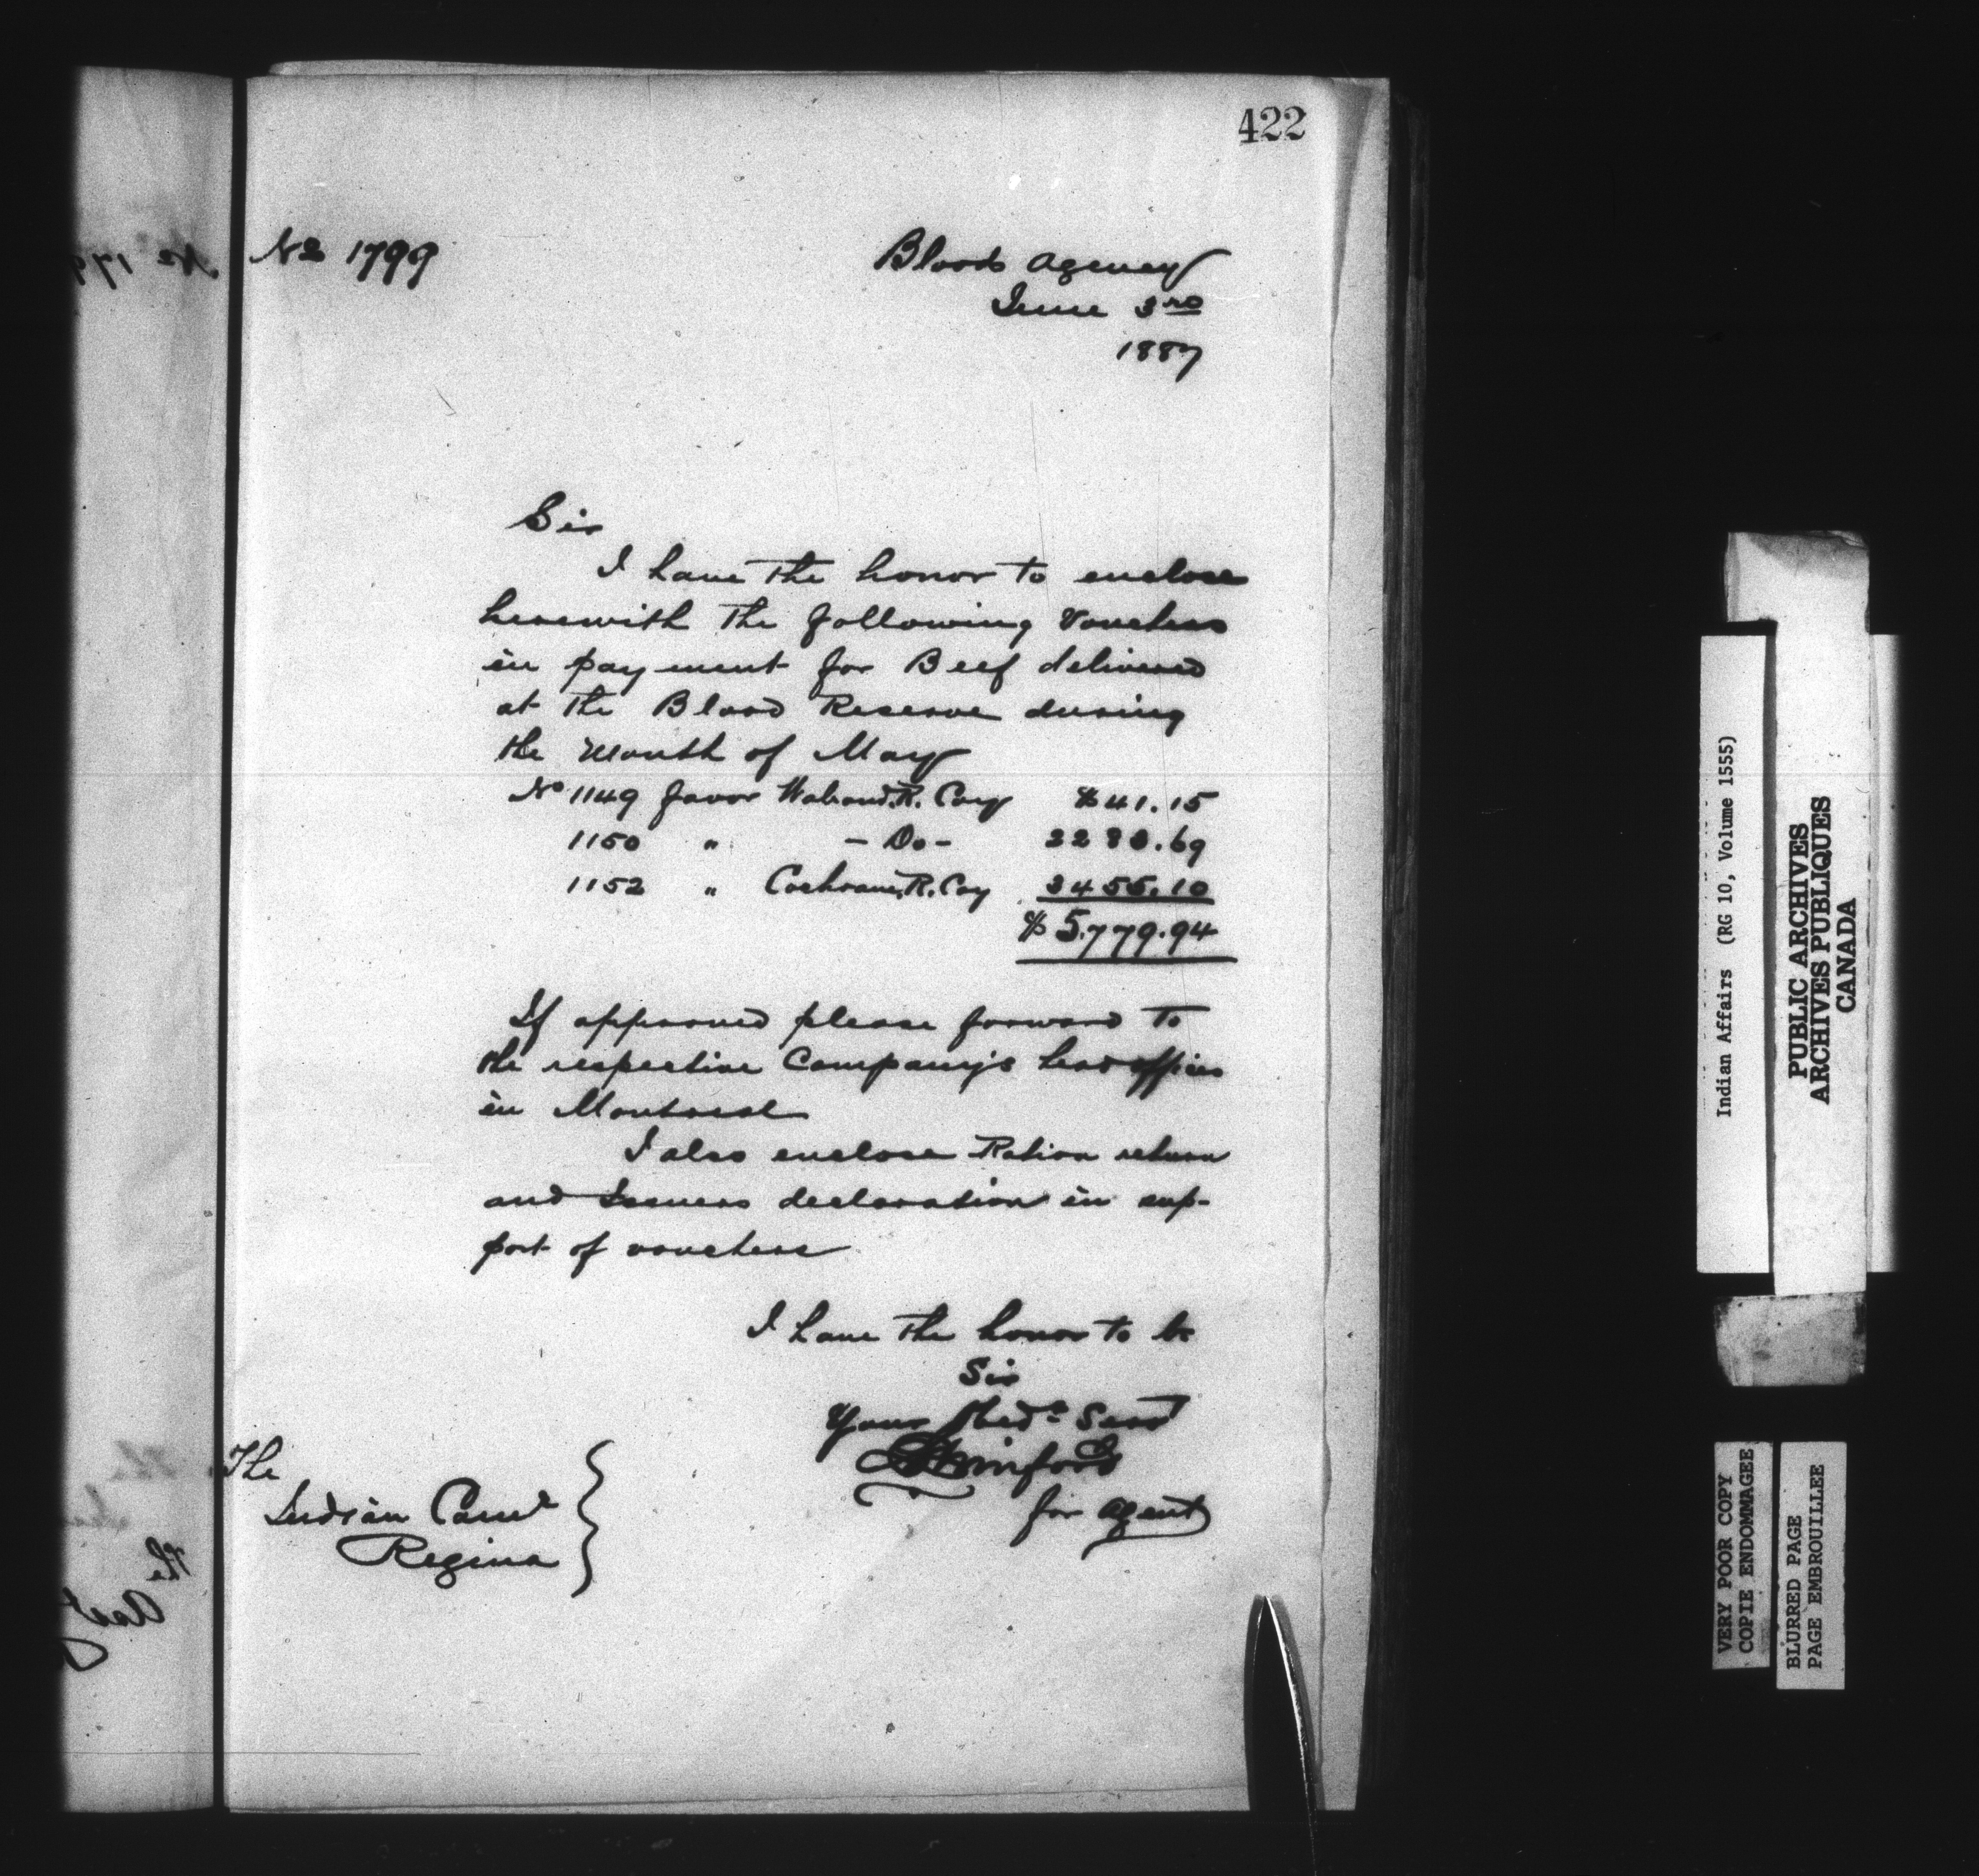 422
No 1799
Blood Agency
June 3rd
1887
Sir
I have the honor to enclose
herewith the following Vouchers
in payment for Beef delivered
at the Blood Reserve during
the month of May
No 1149 favor Walrond R. Coy $41.15
1150 " - Do - 2283.69
1152 " Cochrane R. Coy 3455.10
$5,779.94
If approved please forward to
the respective Company's head offices
in Montreal
I also enclose Ration return
and Issuers declaration in sup-
port of vouchers
I have the honor to be
Sir
Your Obedt Servt
Swinford
for Agent
The
Indian Comr
Regina
Indian Affairs (RG 10, Volume 1555)
PUBLIC ARCHIVES
ARCHIVES PUBLIQUES
CANADA
VERY POOR COPY
COPIE ENDOMMAGEE
BLURRED PAGE
PAGE EMBROUILLEE